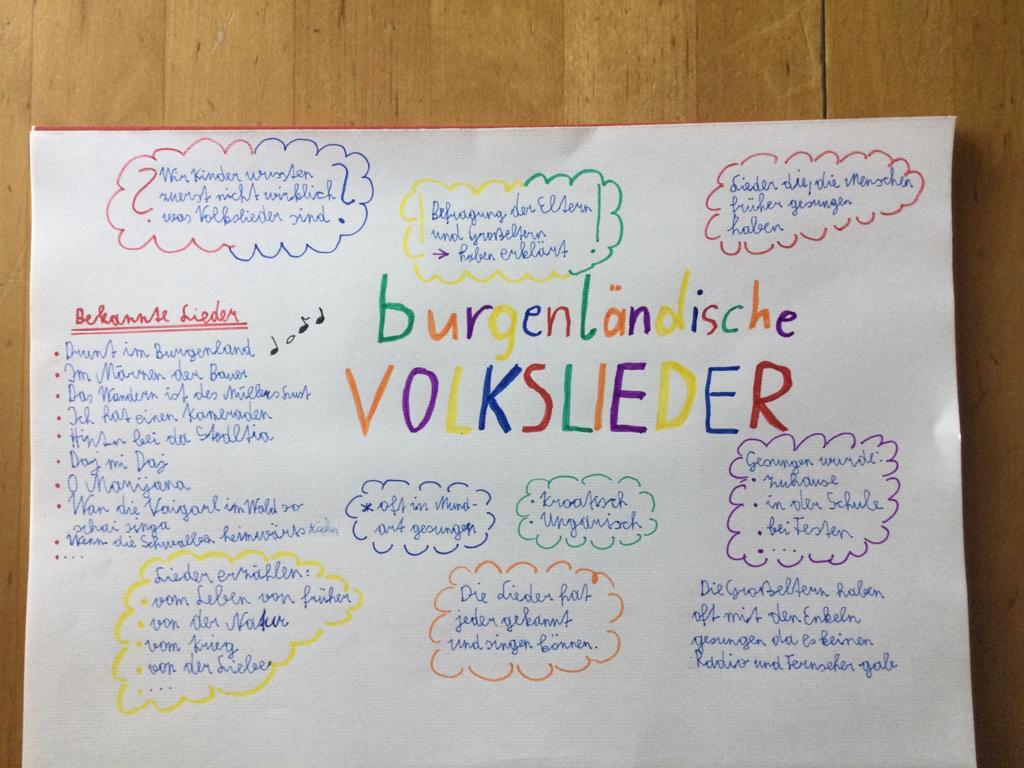 Wir Kinder wussten
zuerst nicht wirklich
was Volkslieder sind.
Befragung der Eltern
und Großeltern
→ haben erklärt
Lieder die, die Menschen
früher gesungen
haben
burgenländische
VOLKSLIEDER
Bekannte Lieder
• Drunt im Burgenland
• Im Märzen der Bauer
• Das Wandern ist des Müllers Lust
• Ich hat einen Kameraden
• Hintn bei da Stodltia
• Daj mi Daj
• O Marijana
• Wan die Vaigarl im Wald so
schai singa
• Wenn die Schwalben heimwärts ziehn
• ...
* oft in Mund-
art gesungen
• Kroatisch
• Ungarisch
Gesungen wurde:
• Zuhause
• in der Schule
• bei Festen
• ...
Lieder erzählen:
• vom Leben von früher
• von der Natur
• vom Krieg
• von der Liebe
• ...
Die Lieder hat
jeder gekannt
und singen können.
Die Großeltern haben
oft mit den Enkeln
gesungen da es keinen
Radio und Fernseher gab